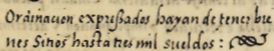 Ordinacion expreßados hayan de tener bue
nes Sitios hasta tres mil sueldos :